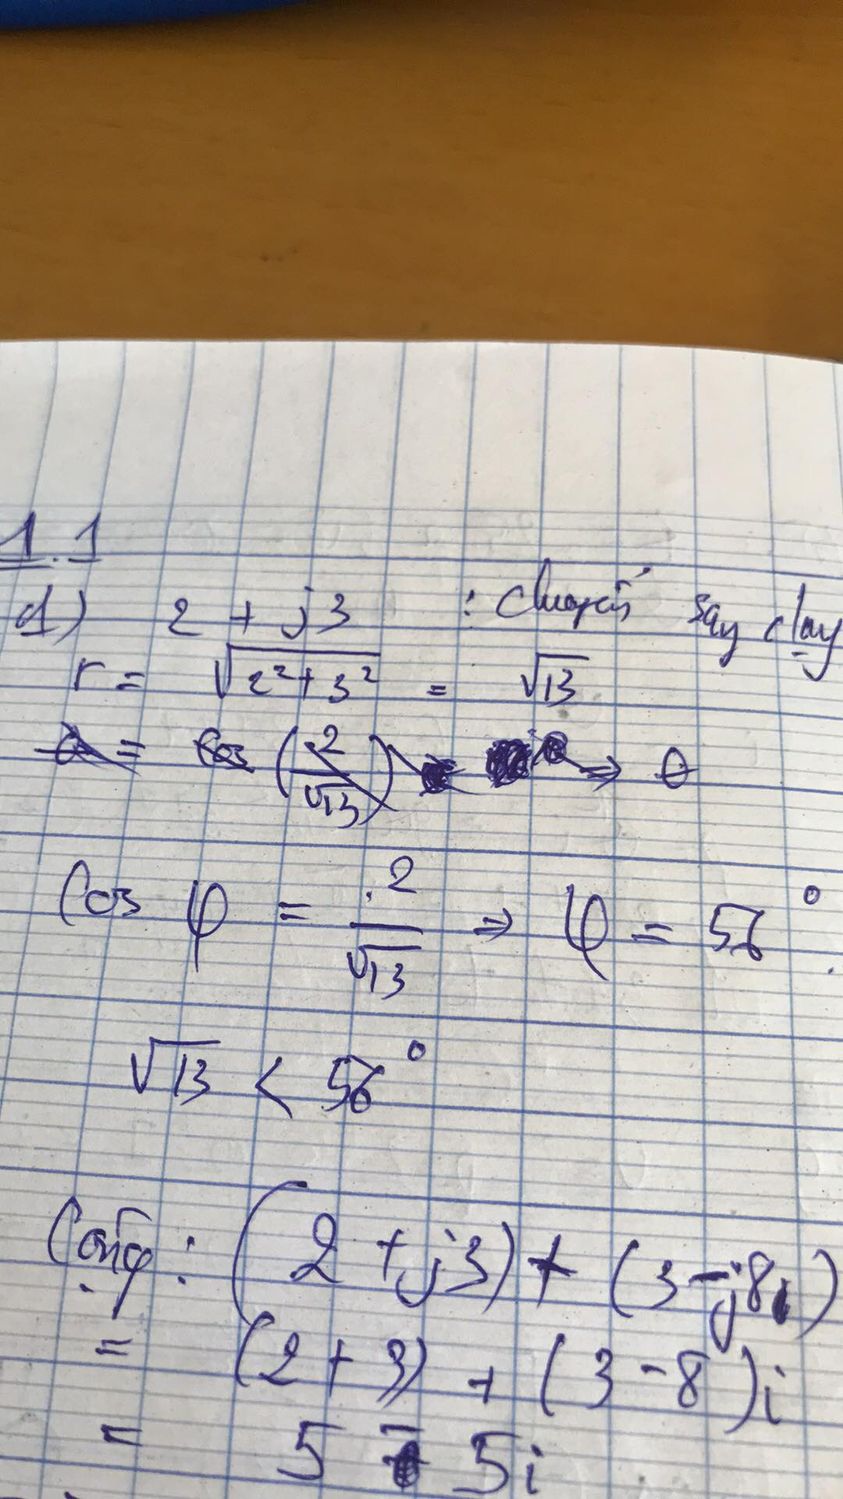 1.1
d) 2 + j3 : chuyển say day
r = √(2² + 3²) = √13
a = cos (2/√13) => θ
Cos φ = 2/√13 => φ = 56°
√13 < 56°
Cộng: (2 + j3) + (3 - j8)
= (2 + 3) + (3 - 8)i
= 5 - 5i